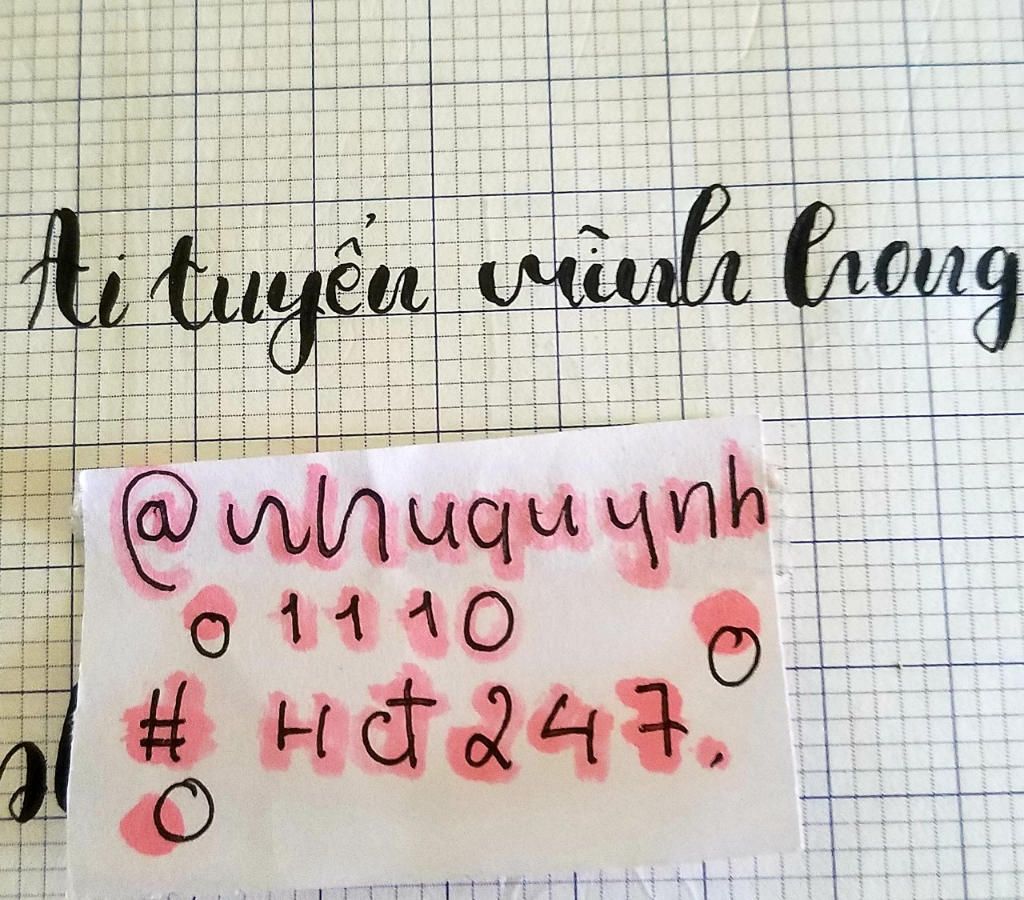 Ai tuyển mình hong
@nhuquynh
1110
# Hđ247.